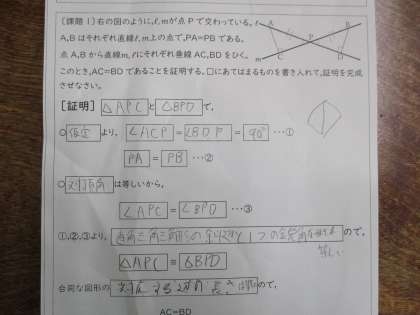 [課題1]右の図のように,ℓ,mが点Pで交わっている。ℓ
A,Bはそれぞれ直線ℓ,m上の点で,PA=PBである。
点A,Bから直線m,ℓにそれぞれ垂線AC,BDをひく。
このとき,AC=BDであることを証明する。□にあてはまるものを書き入れて,証明を完成
させなさい。
A B P C D m
[証明] △APCと△BPDで,
○仮定より, ∠ACP=∠BDP=90° …①
PA=PB …②
○対頂角は等しいから,
∠APC=∠BPD …③
①,②,③より, 直角三角形の斜辺と1つの鋭角がそれぞれので,
等しい
△APC=△BPD
合同な図形の対応する辺の長さは等しいので,
AC=BD